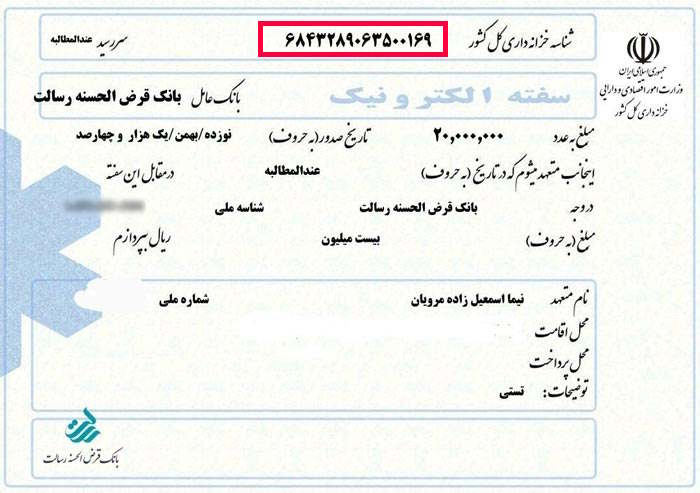 جمهوری اسلامی ایران
وزارت امور اقتصادی و دارایی
خزانه داری کل کشور
شناسه خزانه داری کل کشور ۶۸۴۳۲۸۹۰۶۳۵۰۰۱۶۹ سررسید عندالمطالبه
سفته الکترونیک بانک عامل بانک قرض الحسنه رسالت
مبلغ به عدد ۲۰,۰۰۰,۰۰۰ تاریخ صدور(به حروف) نوزده/بهمن/یک هزار و چهارصد
اینجانب متعهد میشوم که در تاریخ (به حروف) عندالمطالبه درمقابل این سفته
در وجه بانک قرض الحسنه رسالت شناسه ملی
مبلغ (به حروف) بیست میلیون ریال بپردازم
نام متعهد نیما اسمعیل زاده مرویان شماره ملی
محل اقامت
محل پرداخت
توضیحات: تستی
رسالت
بانک قرض الحسنه رسالت